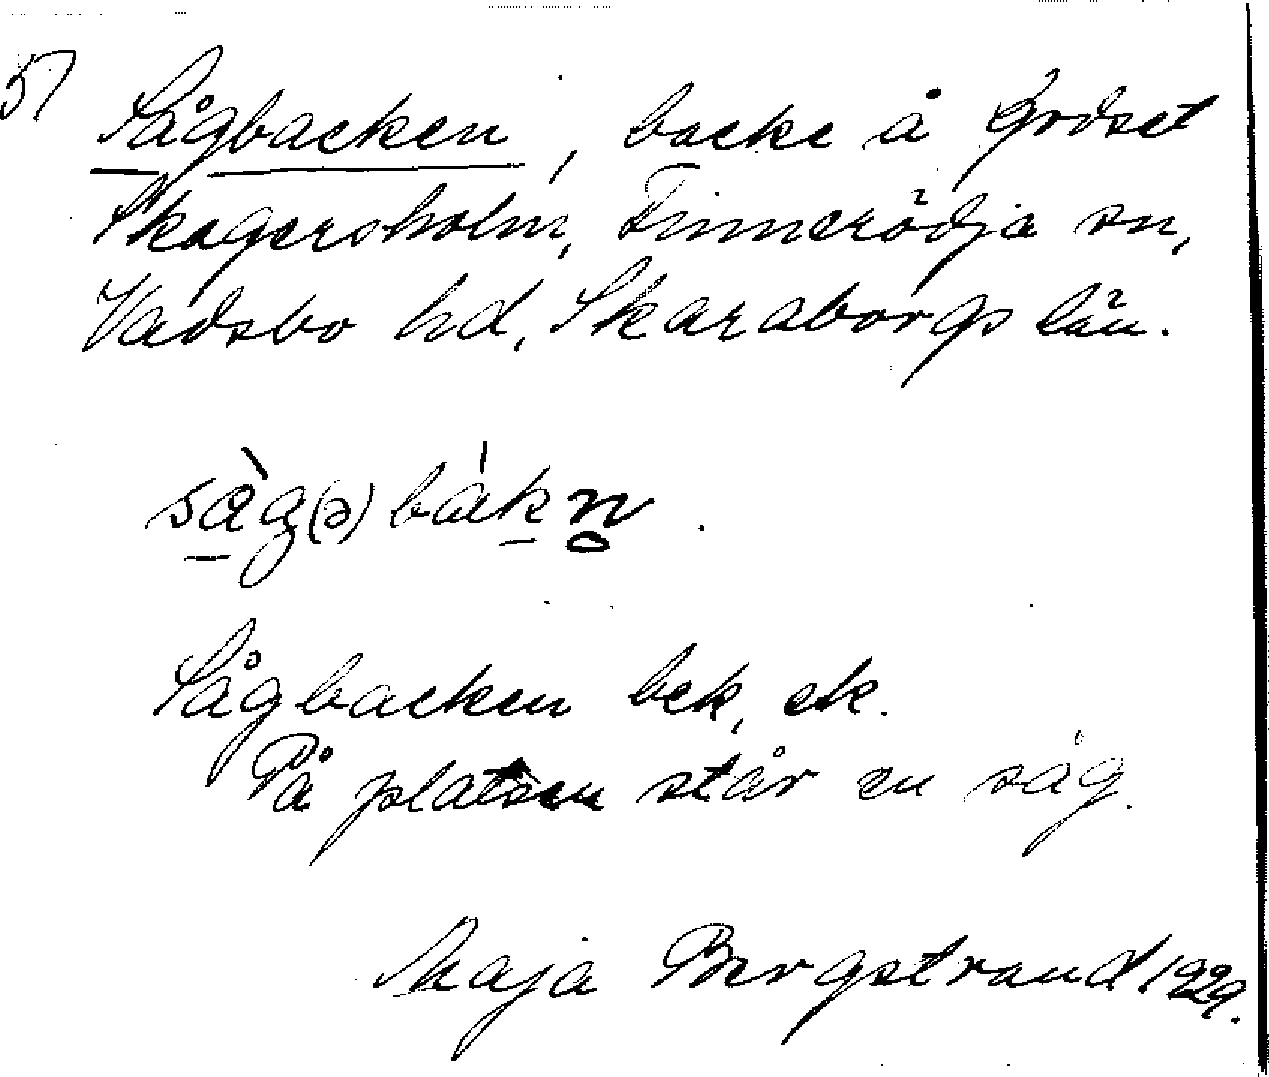 57
Sågbacken, backe å Godset
Skagersholm, Finnerödja sn,
Vadsbo hd, Skaraborgs län.
sàg(ə)bákn̥.
Sågbacken bek, ek.
På platsen står en såg.
Maja Bergstrand 1929.